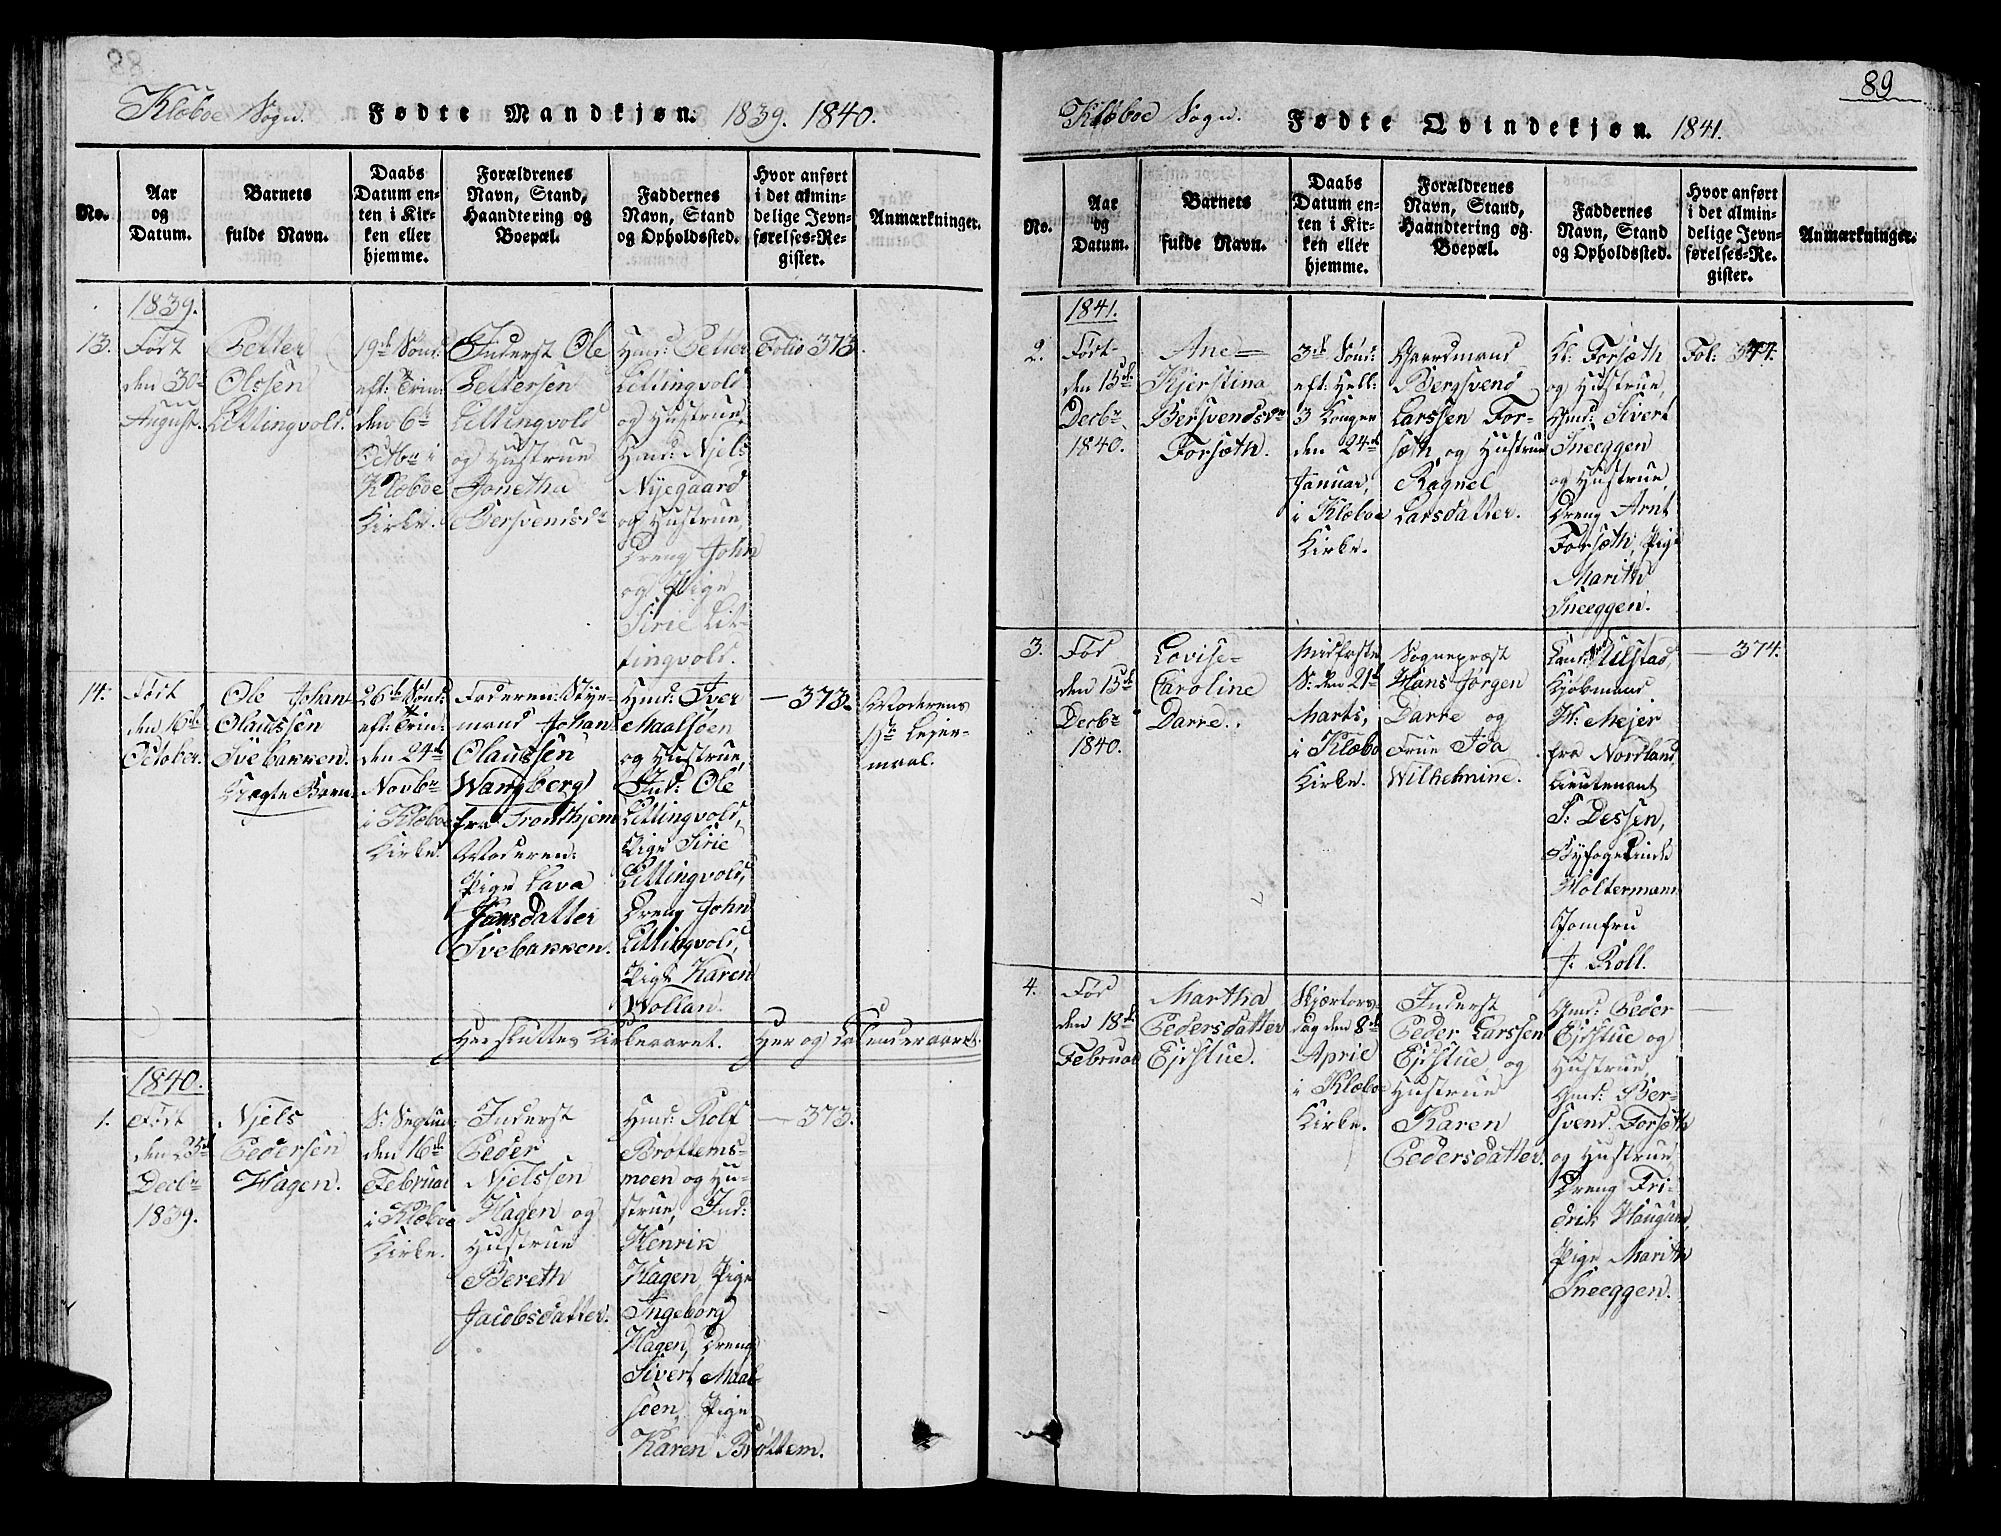 Klæboe Sogn. Fødte Mandkjøn. 1839. 1840.
No.
Aar
og
Datum.
Barnets
fulde Navn.
Daabs
Datum en-
ten i Kir-
ken eller
hjemme.
Forældrenes
Navn, Stand,
Haandtering og
Boepæl.
Faddernes
Navn, Stand
og Opholdssted.
Hvor anført
i det almin-
delige Jevn-
førelses-Re-
gister.
Anmærkninger.
1839.
13.
Født
den 30te
August.
Petter
Olssen
Littingvold.
19de Sønd:
eft: Trin:
den 6te
Octbr i
Klæboe
Kirke.
Inderst Ole
Pettersen
Littingvold
og Hustrue
Jonetha
Bersvendsdr
Hmd: Petter
Littingvold
og Hustrue,
Hmd: Njels
Nyegaard
og Hustrue,
Dreng John
og Pige
Sirie Lit-
tingvold.
Folio 373.
14.
Født
den 16de
October.
Ole Johan
Olaussen
Svebakken.
Uægte Barn.
26de Sønd:
eft: Trin:
den 24de
Novbr
i Klæboe
Kirke.
Faderen: Styr-
mand Johan
Olaussen
Wangberg
fra Trondhjem
Moderen:
Pige Lava
Hansdatter
Svebakken.
Hmd: Iver
Maalsøen
og Hustrue,
Ind: Ole
Littingvold,
Pige Sirie
Littingvold,
Dreng John
Littingvold,
Pige Karen
Wollan.
— 373.
Moderens
1ste Leier-
maal.
Her sluttes Kirkeaaret. Her og Calenderaaret.
1840.
1.
Født
den 25de
Decbr
1839.
Njels
Pedersen
Hagen.
S: Sexag:
den 16de
Februar
i Klæboe
Kirke.
Inderst
Peder
Njelssen
Hagen og
Hustrue
Bereth
Jacobsdatter.
Hmd: Rolf
Brøttems-
moen og Hu-
strue, Ind:
Henrik
Hagen, Pige
Ingeborg
Hagen, Dreng
Sivert Maal-
søen, Pige
Karen Brøttem.
— 373.
89
Klæboe Sogn. Fødte Qvindekjøn. 1841.
No.
Aar
og
Datum.
Barnets
fulde Navn.
Daabs
Datum en-
ten i Kir-
ken eller
hjemme.
Forældrenes
Navn, Stand,
Haandtering og
Boepæl.
Faddernes
Navn, Stand
og Opholdssted.
Hvor anført
i det almin-
delige Jevn-
førelses-Re-
gister.
Anmærkninger.
1841.
2.
Født
den 15de
Decbr
1840.
Ane
Kjerstina
Bersvendsdr
Forsæth.
3de Sønd:
eft: Hell:
3 Konger
den 24de
Januar,
i Klæboe
Kirke.
Gaardmand
Bersvend
Larssen For-
sæth og Hustrue
Ragnel
Larsdatter.
Forsæth
og Hustrue,
Gmd: Sivert
Sneeggen
og Hustrue,
Dreng Arnt
Forsæth, Pige
Marith
Sneeggen.
Fol: 374.
3.
Fød
den 15de
Decbr
1840.
Lovise
Caroline
Darre.
Midfaste
S: den 21de
Marts,
i Klæbo
Kirke.
Sognepræst
Hans Jørgen
Darre og
Frue Ida
Wilhelmine.
Ulstad,
Kjøbmand
Mejer
fra Nordland,
Lieutenant
S: Dessen,
Holtermann
Jomfru
J: Roll.
— 374.
4.
Fød
den 18de
Februar
Martha
Pedersdatter
Ejdstue.
Skjærtors-
dag den 8de
April
i Klæboe
Kirke.
Inderst
Peder Larssen
Ejdstue, og
Hustrue
Karen
Pedersdatter.
Gmd: Peder
Ejdstue og
Hustrue,
Gmd: Ber-
svend Forsæth
og Hustrue,
Dreng Fri-
drik Haugum,
Pige Marith
Sneeggen.
—